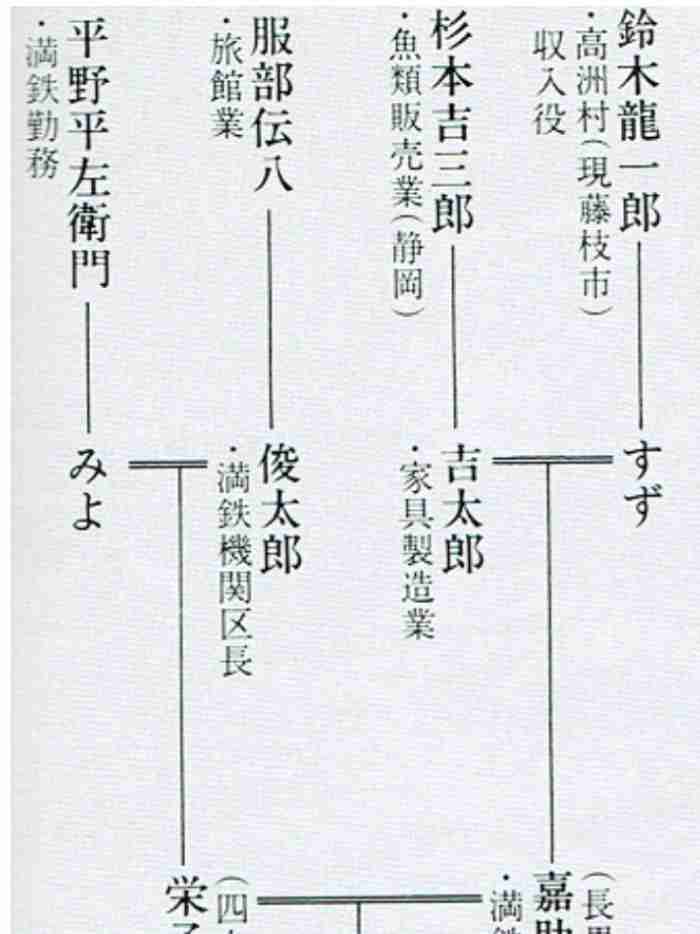 鈴木龍一郎
・高洲村(現藤枝市)
収入役
杉本吉三郎
・魚類販売業(静岡)
服部伝八
・旅館業
平野平左衛門
・満鉄勤務
すず
吉太郎
・家具製造業
俊太郎
・満鉄機関区長
みよ
(長男
嘉助
・満鉄
(四
栄子